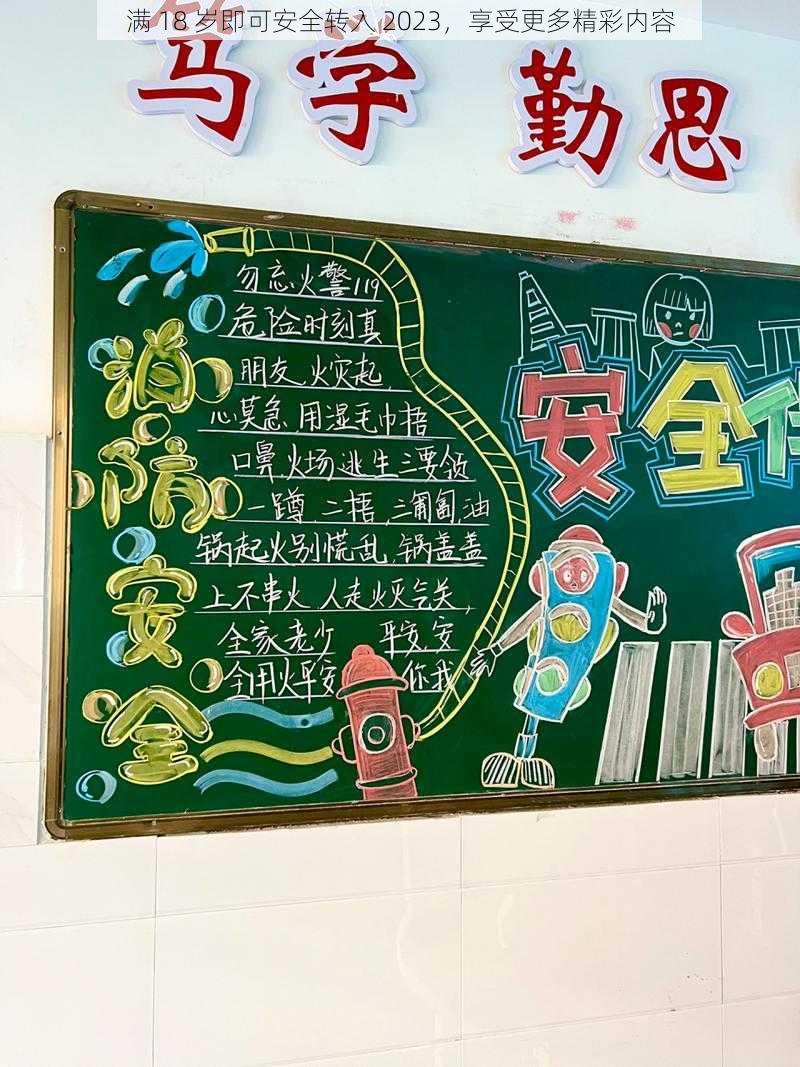 满 18 岁即可安全转入 2023，享受更多精彩内容
笃学 勤思
消防安全
勿忘火警119
危险时刻真
朋友,火灾起
心莫急,用湿毛巾捂
口鼻,火场逃生三要领
一蹲,二捂,三匍匐,油
锅起火别慌乱,锅盖盖
上不串火,人走火灭气关,
全家老少 平安,安
全用火平安 你我
安全